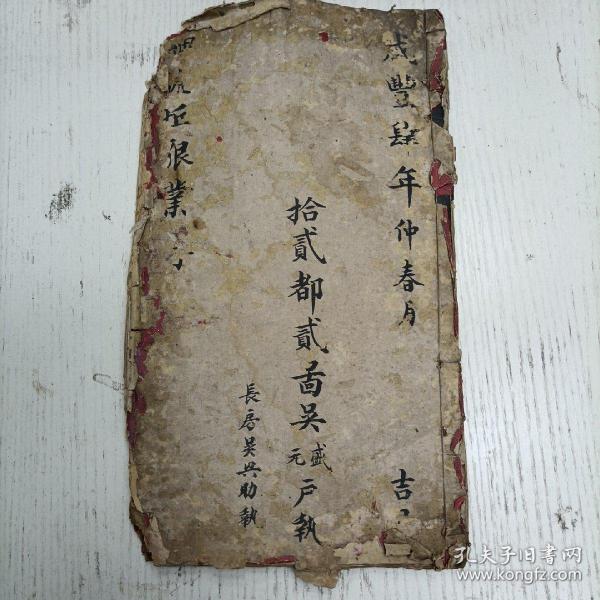 咸豐肆年仲春月 吉
拾貳都貳啚吳
盛
元
戶執
長房吳興助執
坵很業
孔夫子旧书网
www.kongfz.com